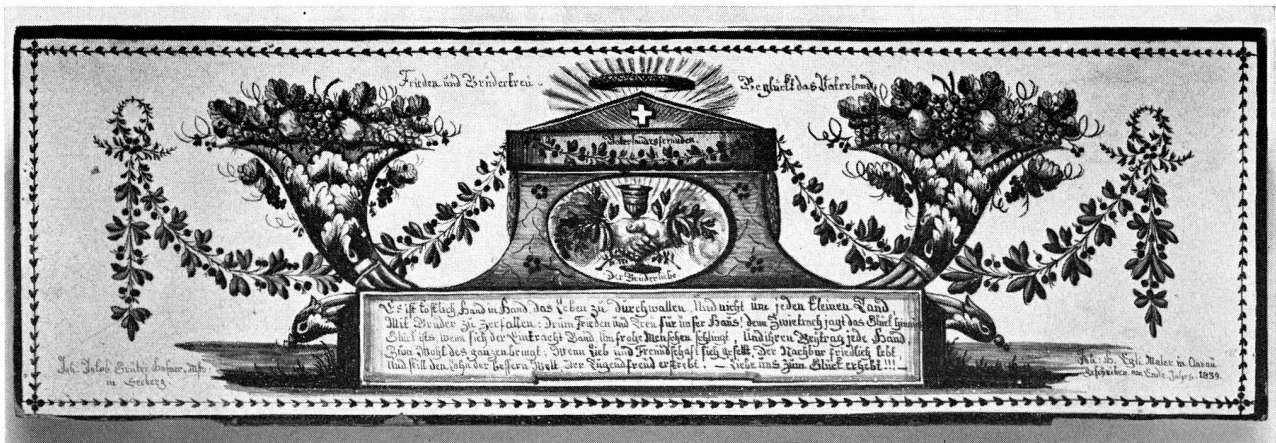 Frieden und Brüdertreu
Beglückt das Vaterland
Vaterlandesfreuden.
Der Bruderliebe
Es ist köstlich Hand in Hand, das Leben zu durchwallen, Und nicht um jeden kleinen Tand,
Mit Brüder zu zerfallen: Drum Frieden und Treu für unser Haus! denn Zwietrach jagt das Glük hinaus
Glük ists, wenn sich der Eintracht Band, Um frohe Menschen schlingt, Und ihren Beytrag jede Hand,
Zum Wohl des ganzen bringt: Wenn Lieb und Freundschaft sich gesellt, Der Nachbar friedlich lebt
Und still den Lohn der bessern Welt Der Tugendfreud erstrebt! — Liebe uns zum Glük erhebt!!! —
Joh. Jakob Hafner,
in Seeberg.
Joh. B. Egli Maler in Aarau
Geschrieben am Ende Jahrs. 1834.